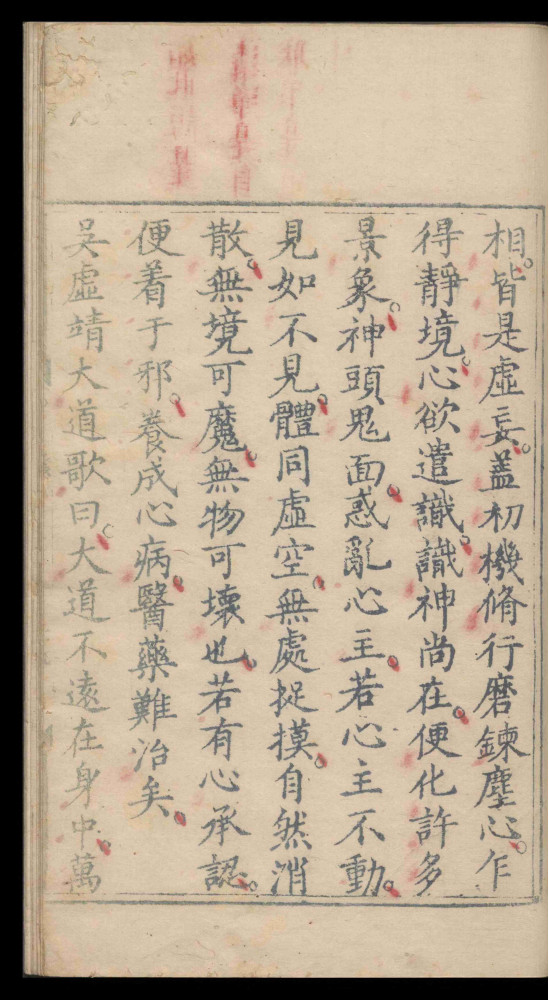 相。皆是虛妄。蓋初機脩行磨鍊塵心。乍
得靜境。心欲遣識。識神尚在。便化許多
景象。神頭鬼面。惑亂心主。若心主不動。
見如不見。體同虛空。無處捉摸。自然消
散。無境可魔。無物可壞也。若有心承認。
便着于邪。養成心病。醫藥難治矣。
吳虛靖大道歌曰。大道不遠在身中。萬